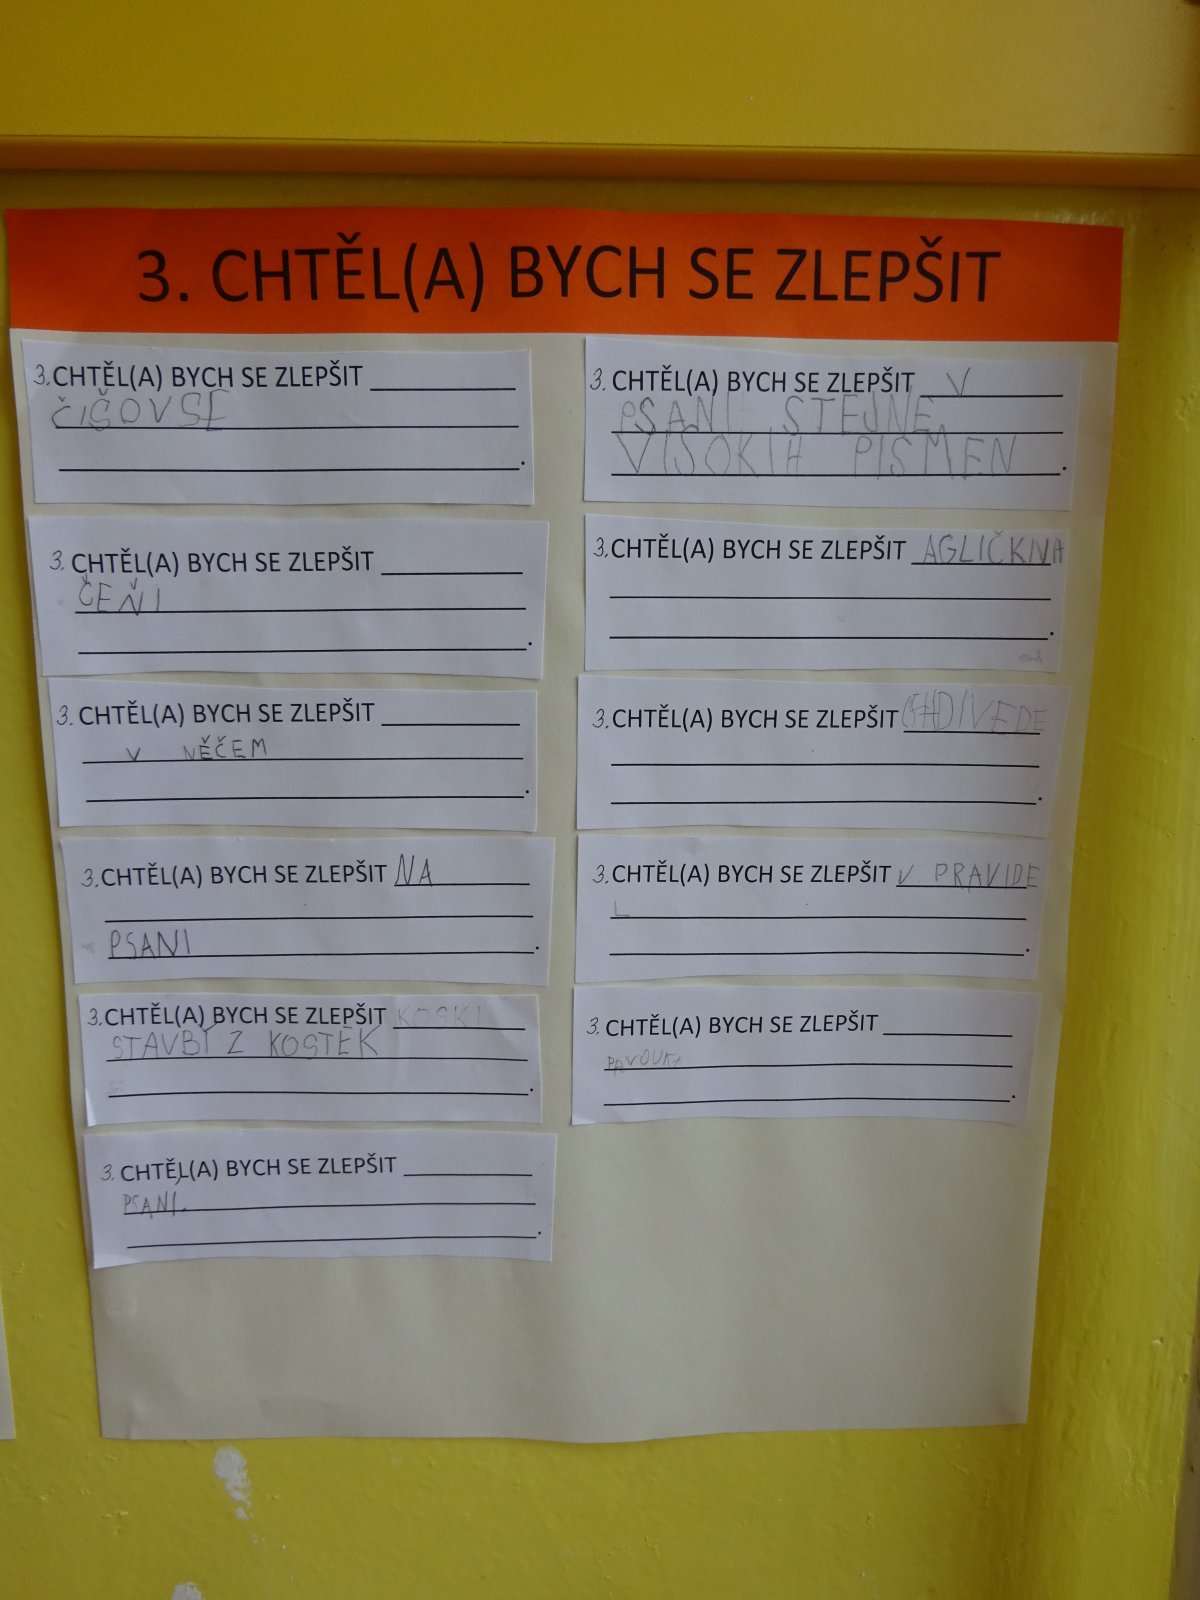 3. CHTĚL(A) BYCH SE ZLEPŠIT
3. CHTĚL(A) BYCH SE ZLEPŠIT
ČIŠOVSE
3. CHTĚL(A) BYCH SE ZLEPŠIT
ČEŇI
3. CHTĚL(A) BYCH SE ZLEPŠIT
V NĚČEM
3. CHTĚL(A) BYCH SE ZLEPŠIT NA
PSANI
3. CHTĚL(A) BYCH SE ZLEPŠIT KOSKI
STAVBÍ Z KOSTEK
3. CHTĚL(A) BYCH SE ZLEPŠIT
PSANÍ.
3. CHTĚL(A) BYCH SE ZLEPŠIT V
PSANÍ STEJNĚ
VISOKIH PISMEN
3. CHTĚL(A) BYCH SE ZLEPŠIT AGLIČKNA
3. CHTĚL(A) BYCH SE ZLEPŠIT
3. CHTĚL(A) BYCH SE ZLEPŠIT V PRAVIDE
L
3. CHTĚL(A) BYCH SE ZLEPŠIT